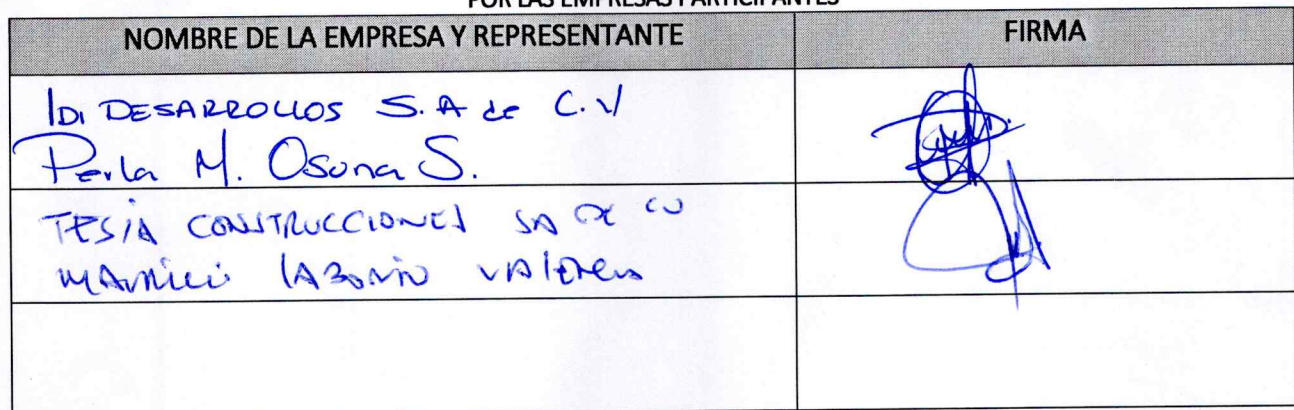 POR LAS EMPRESAS PARTICIPANTES
NOMBRE DE LA EMPRESA Y REPRESENTANTE FIRMA
IDI DESARROLLOS S.A de C.V
Perla M. Osuna S.
TESIA CONSTRUCCIONES SA DE CV